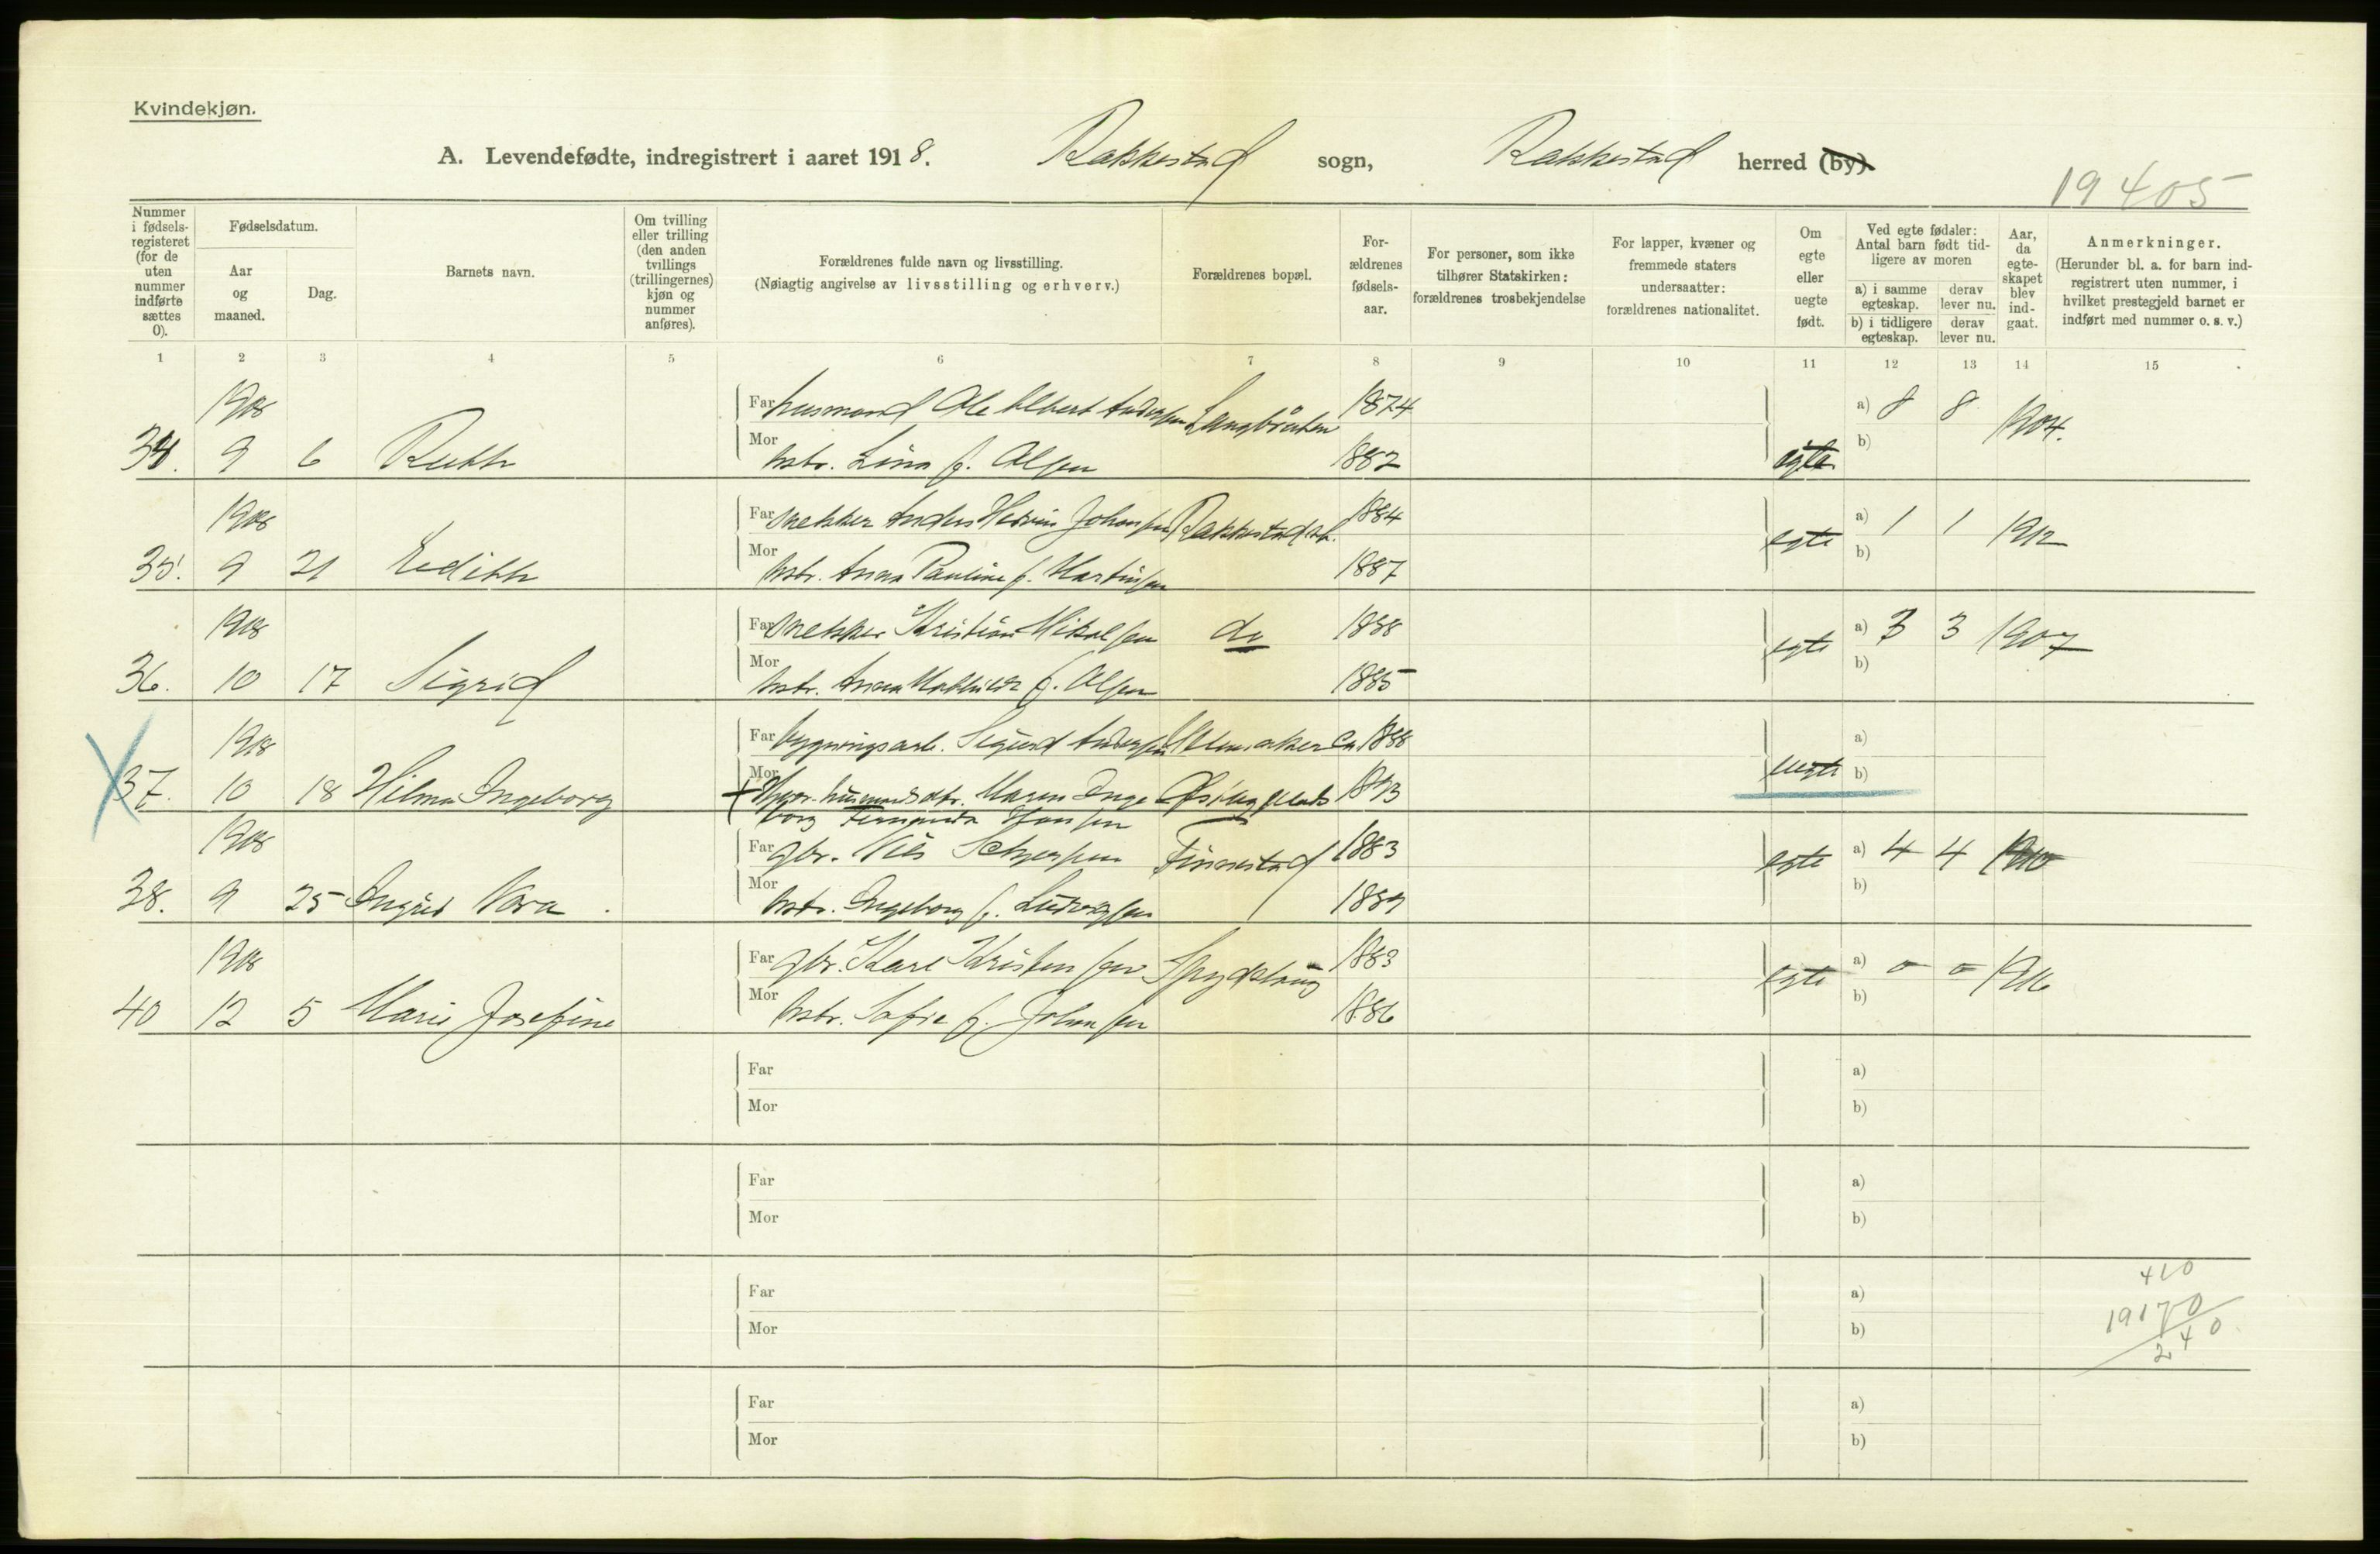 Kvindekjøn.
A. Levendefødte, indregistrert i aaret 1918. Rakkestad sogn, Rakkestad herred (by).
19405
Nummer i fødsels-registeret (for de uten nummer indførte sættes 0).
Fødselsdatum.
Aar og maaned.
Dag.
Barnets navn.
Om tvilling eller trilling (den anden tvillings (trillingernes) kjøn og nummer anføres).
Forældrenes fulde navn og livsstilling.
(Nøiagtig angivelse av livsstilling og erhverv.)
Forældrenes bopæl.
For-ældrenes fødsels-aar.
For personer, som ikke tilhører Statskirken: forældrenes trosbekjendelse
For lapper, kvæner og fremmede staters undersaatter: forældrenes nationalitet.
Om egte eller uegte født.
Ved egte fødsler: Antal barn født tid-ligere av moren
a) i samme egteskap. derav lever nu.
b) i tidligere egteskap. derav lever nu.
Aar, da egte-skapet blev ind-gaat.
Anmerkninger.
(Herunder bl. a. for barn ind-registrert uten nummer, i hvilket prestegjeld barnet er indført med nummer o. s. v.)
1 2 3 4 5 6 7 8 9 10 11 12 13 14 15
1918 Far husmand Ole Albert Andersen Langbråten 1874 a) 8 8 1904.
34. 9 6 Ruth Mor hstr. Lina f. Olsen 1882 egte b)
1918 Far snekker Anders Johansen Rakkestad st. 1884 a) 1 1 1912
35. 9 21 Edith Mor hstr. Anna Pauline f. Martinsen 1887 egte b)
1918 Far snekker Kristian Mikalsen do 1888 a) 3 3 1907
36. 10 17 Sigrid Mor hstr. Anna Mathilde f. Olsen 1885 egte b)
1918 Far bygningsarb. Sigurd Andersen ca 1888 a)
37. 10 18 Hilma Ingeborg Mor husmandsdtr. Maren Inge 1893 uegte b)
borg Hansen
1918 Far gbr. Nils Finnestad 1883 egte a) 4 4 1910
38. 9 25 Ingrid Nora Mor hstr. Ingeborg f. Ludvigsen 1889 b)
1918 Far gbr. Karl Kristensen 1883 egte a) 0 0 1916
40 12 5 Marie Josefine Mor hstr. Sofie f. Johansen 1886 b)
Far a)
Mor b)
Far a)
Mor b)
420
Far a)
19170
Mor b)
240
Far a)
Mor b)